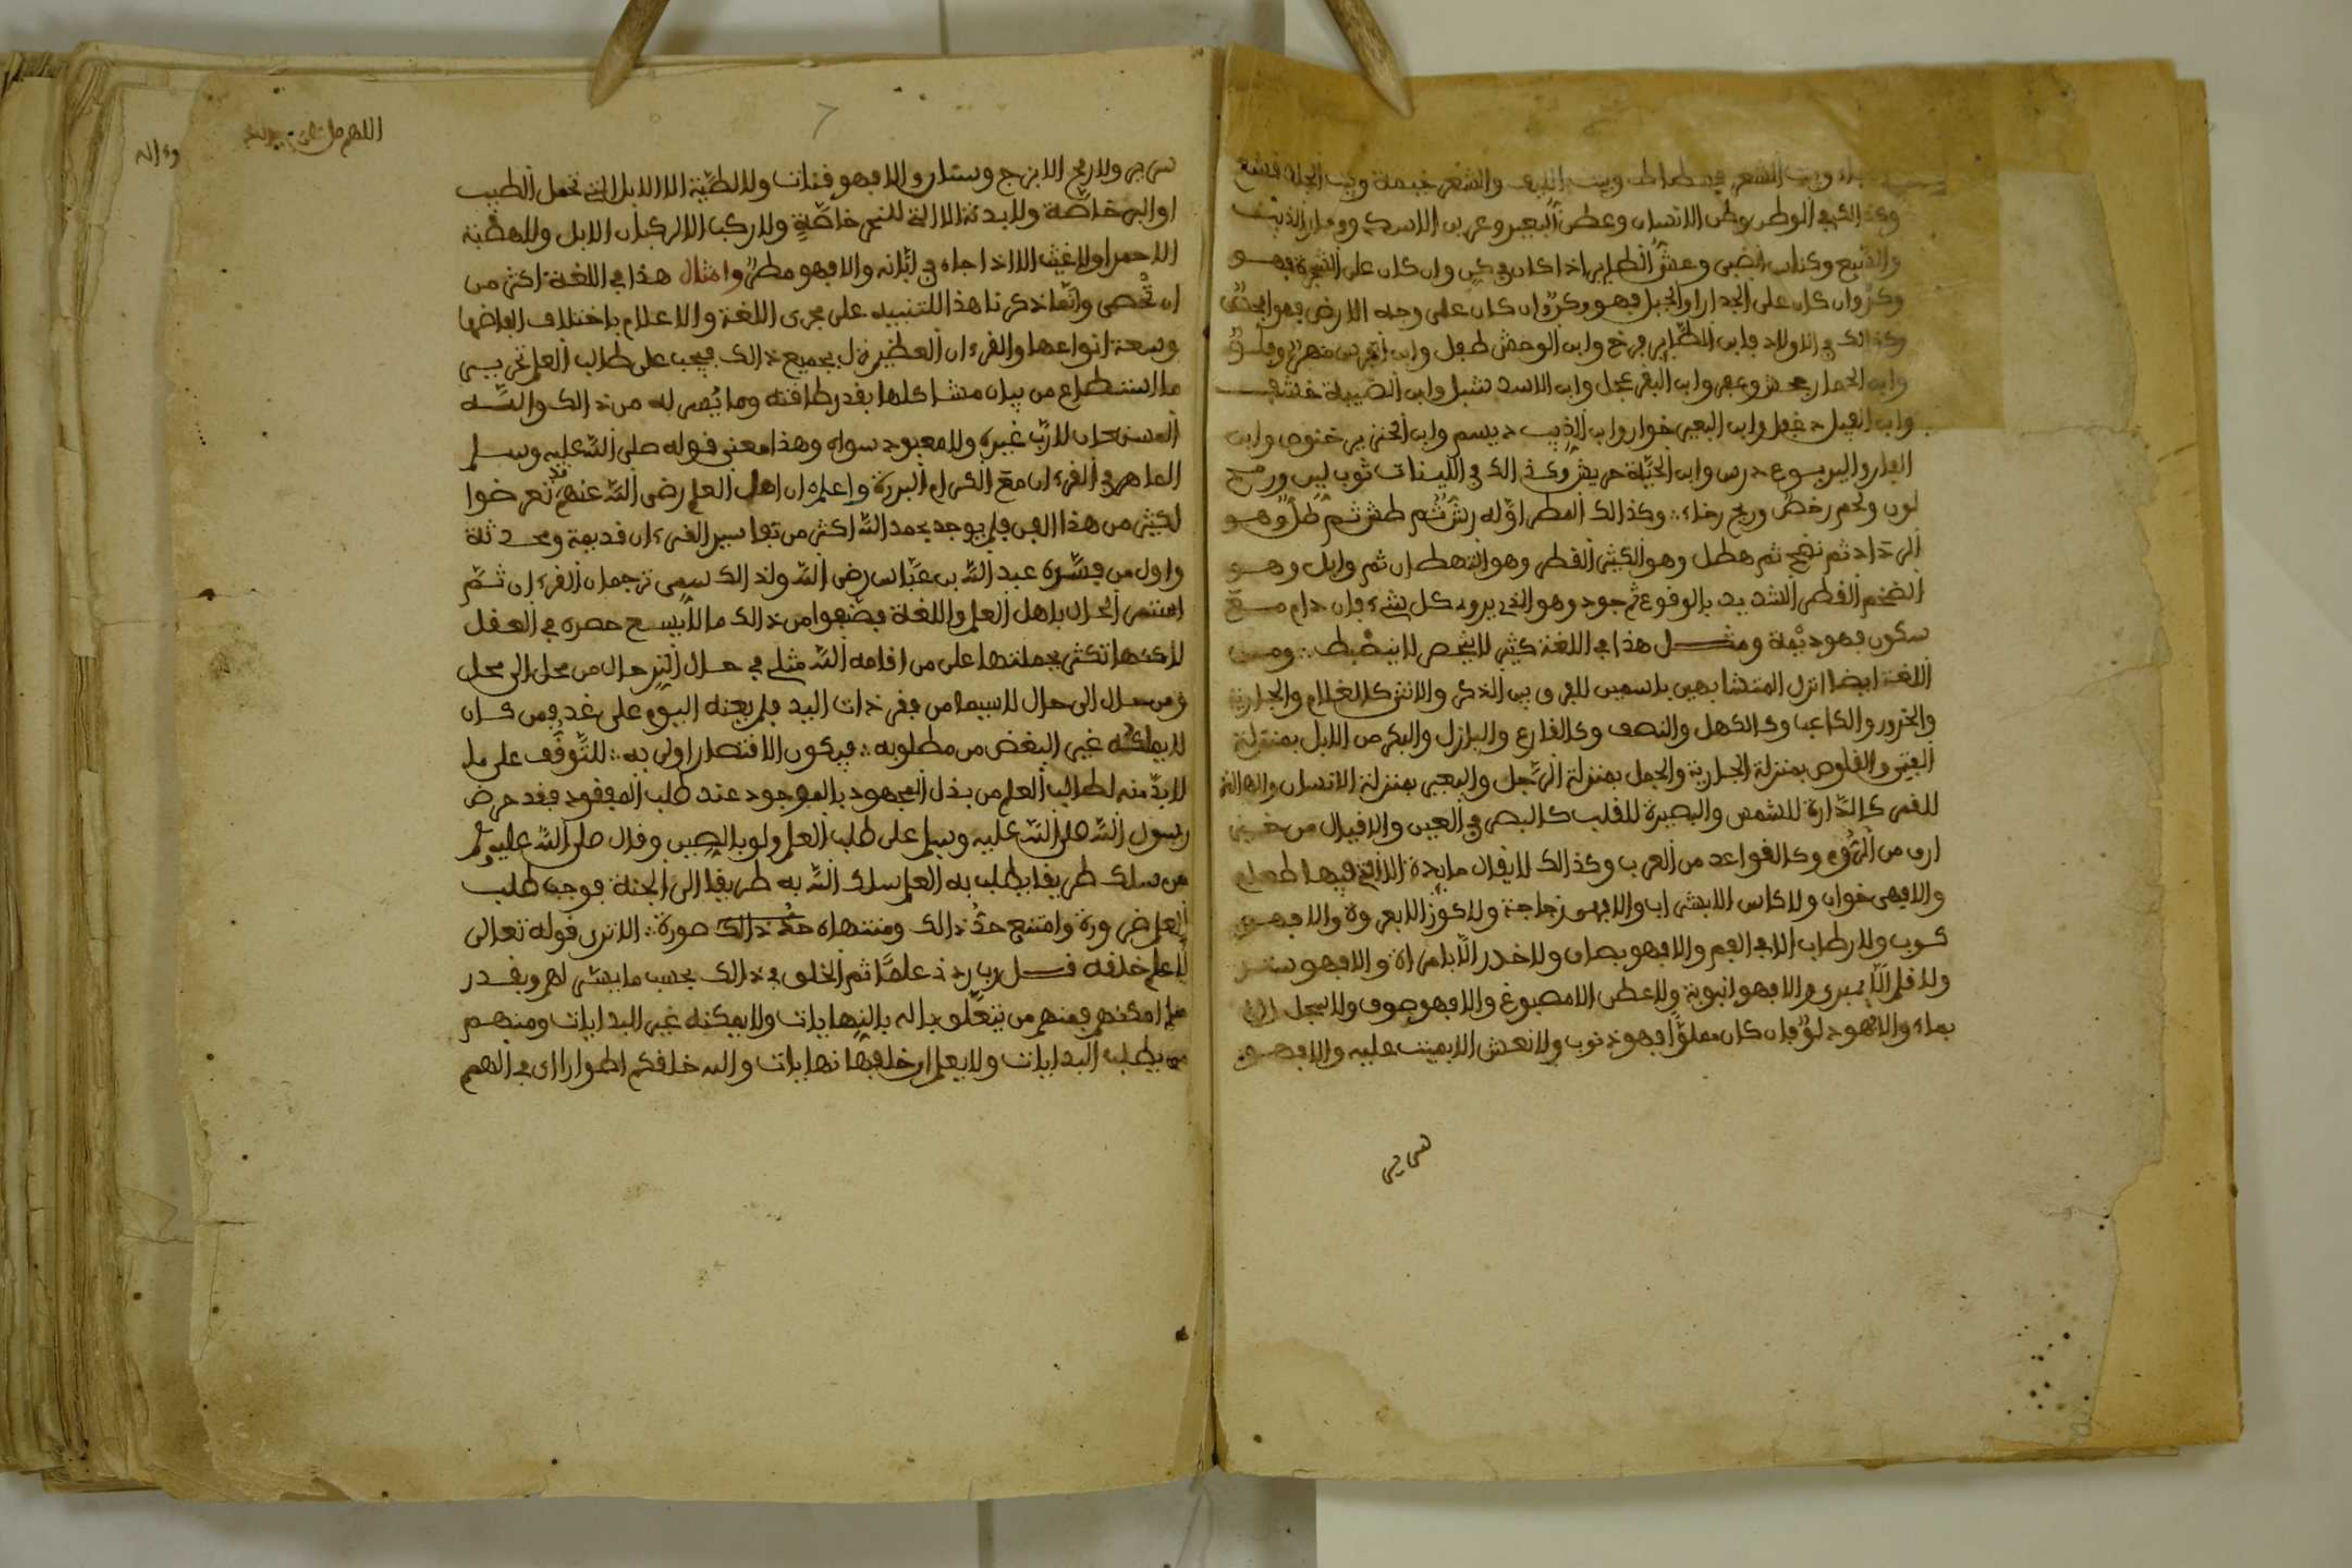 وبيت الشعر فسطاط وبيت والشعر خيمة وبيت الجلد فشع
وكذالك في الوطن وطن الانسان وعطن البعير وعرين الاسد ووجار الذيب
والضبع وكناس الضبي وعش الطاير اذا كان في وان كان على الشجرة فهو
وكر وان كان على الجدار او الجبل فهو وكر وان كان على وجه الارض فهو
وكذالك في الاولاد فابن الطاير فرخ وابن الوحش طفل وابن الفرس مهر وفلو
وابن الحمار جحش وعفو وابن البقر عجل وابن الاسد شبل وابن الضبية خشف
وابن الفيل دغفل وابن البعير خوار وابن الذيب ديسم وابن الخنزير خنوص وابن
الفار واليربوع درص وابن الحية حربش وكذالك في اللينات ثوب لين ورمح
لدن ولحم رخص وريح رخاء وكذالك المطر اوله رش ثم طش ثم طل وهو
الرذاذ ثم نضح ثم هطل وهو الكثير القطر وهو التهطان ثم وابل وهو
الضخم القطر الشديد بالوقوع ثم جود وهو الذي يروى كل شيء فان دام مع
سكون فهو ديمة ومثل هذا في اللغة كثير لا يحص لا ينضبط ومن
اللغة ايضا انزل المتشابهين باسمين للفرق بين الذكر والانثى كالغلام والجارية
والحزور والكاعب وكالكهل والنصف وكالفارع والبازل والبكر من الابل بمنزلة
الفتى والقلوص بمنزلة الجارية والجمل بمنزلة الرجل والبعير بمنزلة الانسان والهالة
للقمر كالدارة للشمس والبصيرة للقلب كالبصر في العين والاقيال من
ارى من الروم وكالقواعد من العرب وكذالك لا يقال مايدة الا التي فيها طعام
والا فهي خوان ولا كاس الا بشراب والا فهي زجاجة ولا كوز الا بعروة والا فهو
كوب ولا رضاب الا في الفم والا فهو بصاق ولا خدر الا بامراة والا فهو ستر
ولا قلم الا ببري والا فهو انبوبة ولا عطن الا مصبوغ والا فهو صوف ولا سجل الا
بماء والا فهو دلو فان كان مملوا فهو ذنوب ولا نعش الا بميت عليه والا فهو
سرير
اللهم صل على
سرير ولا ريح الا بزج وستار والا فهو قناة ولا لطيمة الا الابل التي تحمل الطيب
او البر خاصة ولا بدنة الا التي للنحر خاصة ولا ركب الا لركبان الابل ولا هضبة
الا حمرا ولا غيث الا اذا جاء في ابانه والا فهو مطر وامثال هذا في اللغة اكثر من
ان تحصى وانما ذكرنا هذا للتنبيه على مجرى اللغة والاعلام باختلاف الفاضها
وسعة انواعها والقرءان العظيم نزل بجميع ذالك فيجب على طالب العلم تحرير
ما استطاع من بيان مشاكلها بقدر طاقته وما يسر له من ذالك والله
المستعان لا رب غيره ولا معبود سواه وهذا معنى قوله صلى الله عليه وسلم
الماهر في القرءان مع الكرام البررة واعلم ان اهل العلم رضي الله عنهم قد تعرضوا
لكثير من هذا الفن فلم يوجد بحمد الله اكثر من تفاسير القرءان قديمة ومحدثة
واول من فسره عبد الله بن عباس رضي الله ولذالك سمي ترجمان القرءان ثم
استمر الحال باهل العلم واللغة فصنفوا من ذالك ما لا يسح حصره في العقل
لاكنها تكثر بجملتها على من اقامه الله مثلي في حال الترحال من محل الى محل
ومن حال الى حال لاسيما من فقر ذات اليد فلم يعنه اليوم على غد فمن كان
لا يملكه غير البعض من مطلوبه فيكون الاقتصار اولى به للتوقف على ما
لا بد منه لطالب العلم من بذل المجهود بالموجود عند طلب المفقود فقد حرض
رسول الله صلى الله عليه وسلم على طلب العلم ولو بالصين وقال صلى الله عليه وسلم
من سلك طريقا يطلب به العلم سلك الله به طريقا الى الجنة فوجب طلب
العلم ضرورة وامتنع حد ذالك ومنتهاه حد ذالك صورة الا ترى قوله تعالى
لاعلم خلقه قل رب زدني علما ثم الخلق في ذالك بحسب ما يسر لهم وبقدر
ما امكنهم فمنهم من يتعلق باله بالنهايات ولا يمكنه غير البدايات ومنهم
من يطلب البدايات ولا يعلم ان خلفها نهايات والله خلقكم اطوارا اى في الهمم